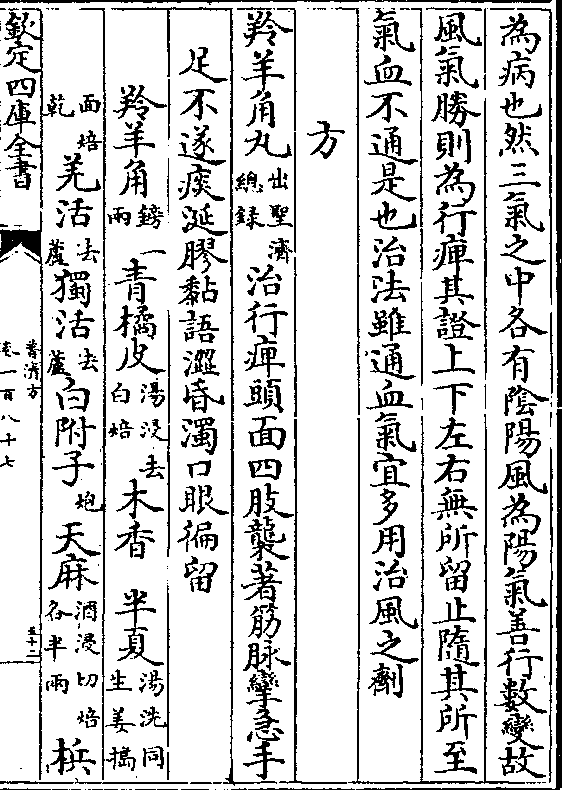 為病也然三氣之中各有陰陽風為陽氣善行數變故
風氣勝則為行痺其證上下左右無所留止隨其所至
氣血不通是也治法雖通血氣宜多用治風之劑
方
羚羊角丸出聖濟總錄 治行痺頭面四肢襲著筋脉攣急手
足不遂痰涎膠黏語澀昏濁口眼徧留
羚羊角鎊一兩 青橘皮湯浸去白焙 木香 半夏湯洗同生姜搗
面焙乾 羌活去蘆 獨活去蘆 白附子炮 天麻酒浸切焙各半兩 梹
欽定四庫全書
普濟方
卷一百八十七
五十二